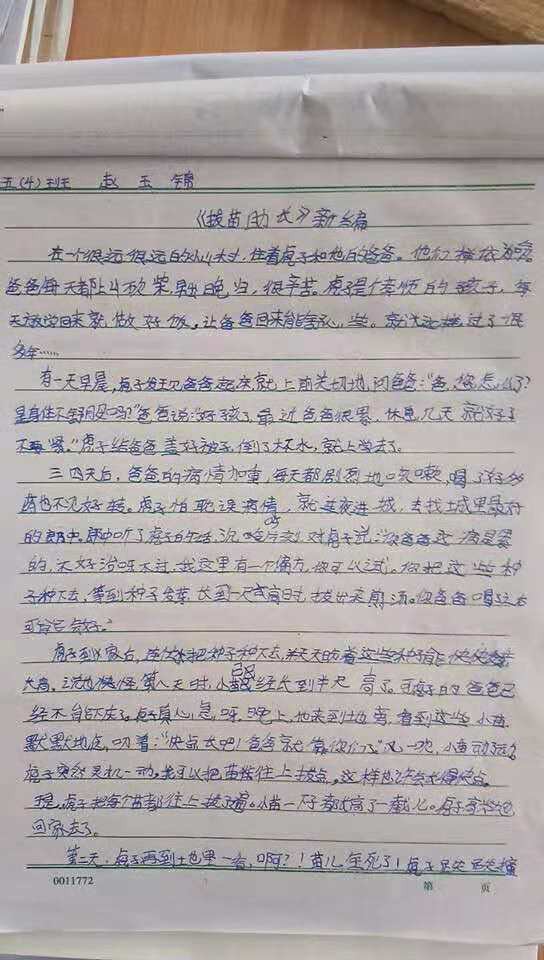 五(4)班 赵玉锦
《拔苗助长》新编
在一个很远很远的小山村,住着虎子和他的爸爸。他们
爸爸每天都上山砍柴,很辛苦。虎子是个孝顺的孩子,每
天放学回来就做好饭,让爸爸回来能舒心些。就这样过了很
多年……
有一天早晨,虎子发现爸爸起床就上前关切地问爸爸:“爸,您怎么了?
是身体不舒服吗?”爸爸说:“好孩子,最近爸爸很累,休息几天就好了
不要紧。”虎子给爸爸盖好被子,倒了杯水,就上学去了。
三四天后,爸爸的病情加重,每天都剧烈地咳嗽,喝了好多
药也不见好转。虎子怕耽误病情,就连夜进城,去找城里最好
的郎中。郎中听了虎子的话,沉吟片刻对虎子说:“你爸爸这病是累
的,不好治呀不过,我这里有一个偏方,你可以试试。你把这些种
子种下去,等到种子发芽,长到一尺高时,拔出来煎汤。你爸爸喝了
”
虎子回到家后,把种子种下去,天天盼着这些种子能快快
大高。说也快怪第八天时,小苗已经长到半尺高了。可虎子的爸爸已
经不能下床了。虎子真心急呀。晚上,他来到地旁,看到这些小苗
默默地点,叨着:“快点长吧!爸爸就靠你们了”风一吹,小苗动了
虎子突然灵机一动,我可以把苗往上拔点,这样
是,虎子把每个苗都往上拔了一遍。小苗一下子都高了一截儿。虎子高兴地
回家去了。
第二天,虎子再到地里一看,啊?!苗儿全死了!虎子
0011772
第 页